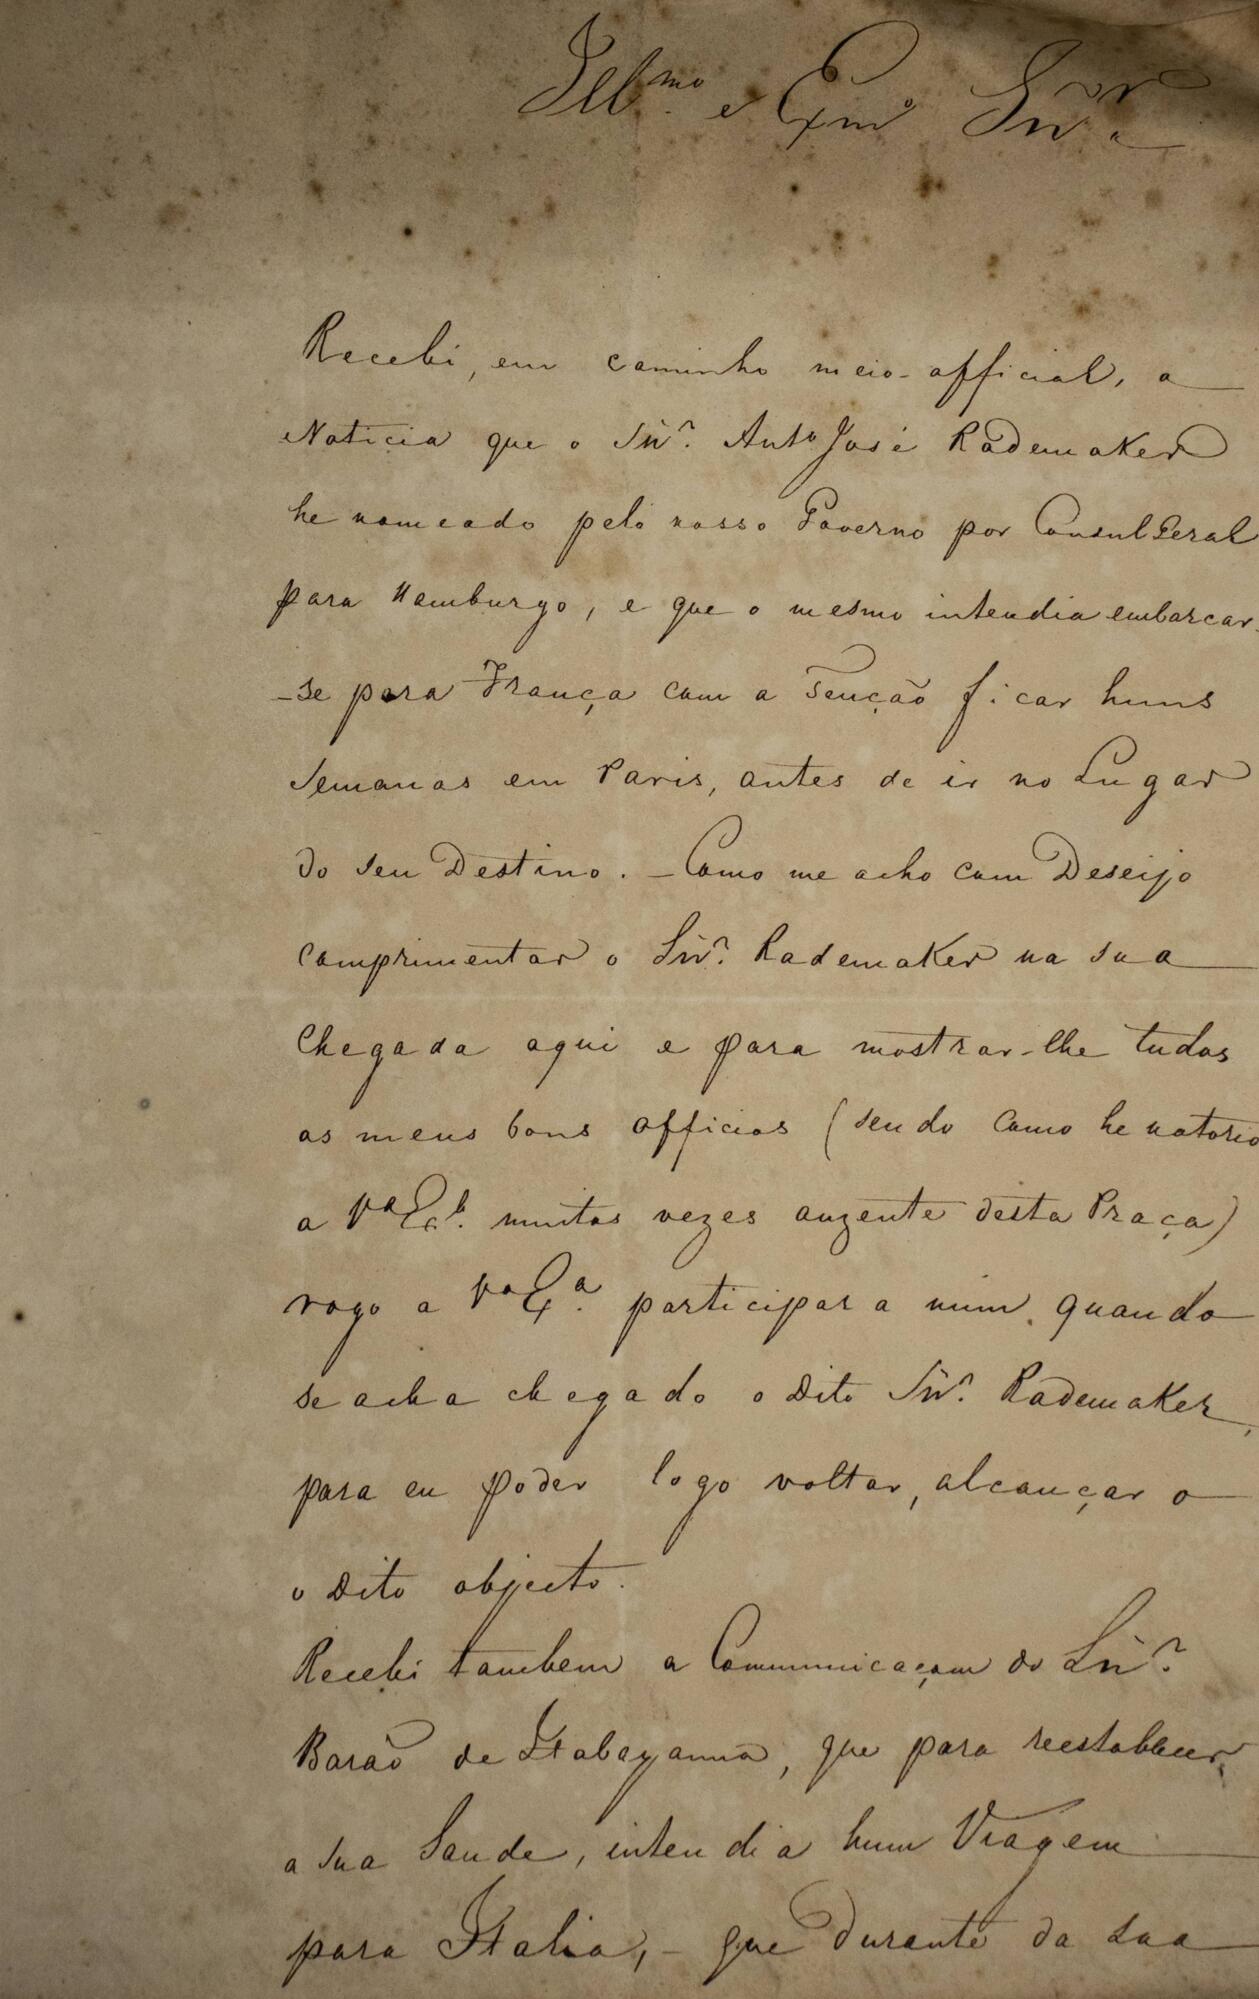 Illmo. e Exmo Snr.
Recebi, em caminho meio-official, a
Noticia que o Snr. Anto José Rademaker
he nomeado pelo nosso Governo por Consul Geral
para Hamburgo, e que o mesmo intendia embarcar-
-se para França com a Tenção ficar huns
Semanas em Paris, antes de ir no Lugar
do seu Destino. - Como me acho com Deseijo
Comprimentar o Snr. Rademaker na sua
Chegada aqui e para mostrar-lhe tudos
os meus bons officios (sendo como he notorio
a Va Exa. muitas vezes auzente desta Praça)
rogo a Va Exa. participar a mim quando
se acha chegado o Dito Snr. Rademaker,
para eu poder logo voltar, alcançar o
o Dito objecto.
Recebi tambem a Communicaçam do Snr.
Barão de Itabayanna, que para reestablecer
a sua Saude, intendia hum Viagem
para Italia, - que durante da sua